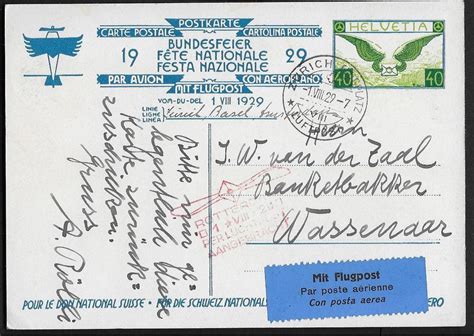 POSTKARTE
CARTE POSTALE CARTOLINA POSTALE
BUNDESFEIER
19 FÊTE NATIONALE 29
FESTA NAZIONALE
PAR AVION CON AEROPLANO
MIT FLUGPOST
VON·DU·DEL 1 VIII 1929
LINIE
LIGNE
LINEA
Basel
HELVETIA
40 40
ZÜRICH FLUGPLATZ
-1.VIII.29.-7
LUFTPOST
Herrn
J. W. van der Zaal
Banketbakker
Wassenaar
Bitte mir ge-
legentlich diese
Karte zurück-
zuschicken.
Gruss
A.
ROTTERDAM
1 VIII 29
PER LUCHTPOST
AANGEBRACHT
Mit Flugpost
Par poste aérienne
Con posta aerea
POUR LE DON NATIONAL SUISSE · FÜR DIE SCHWEIZ. NATIONAL